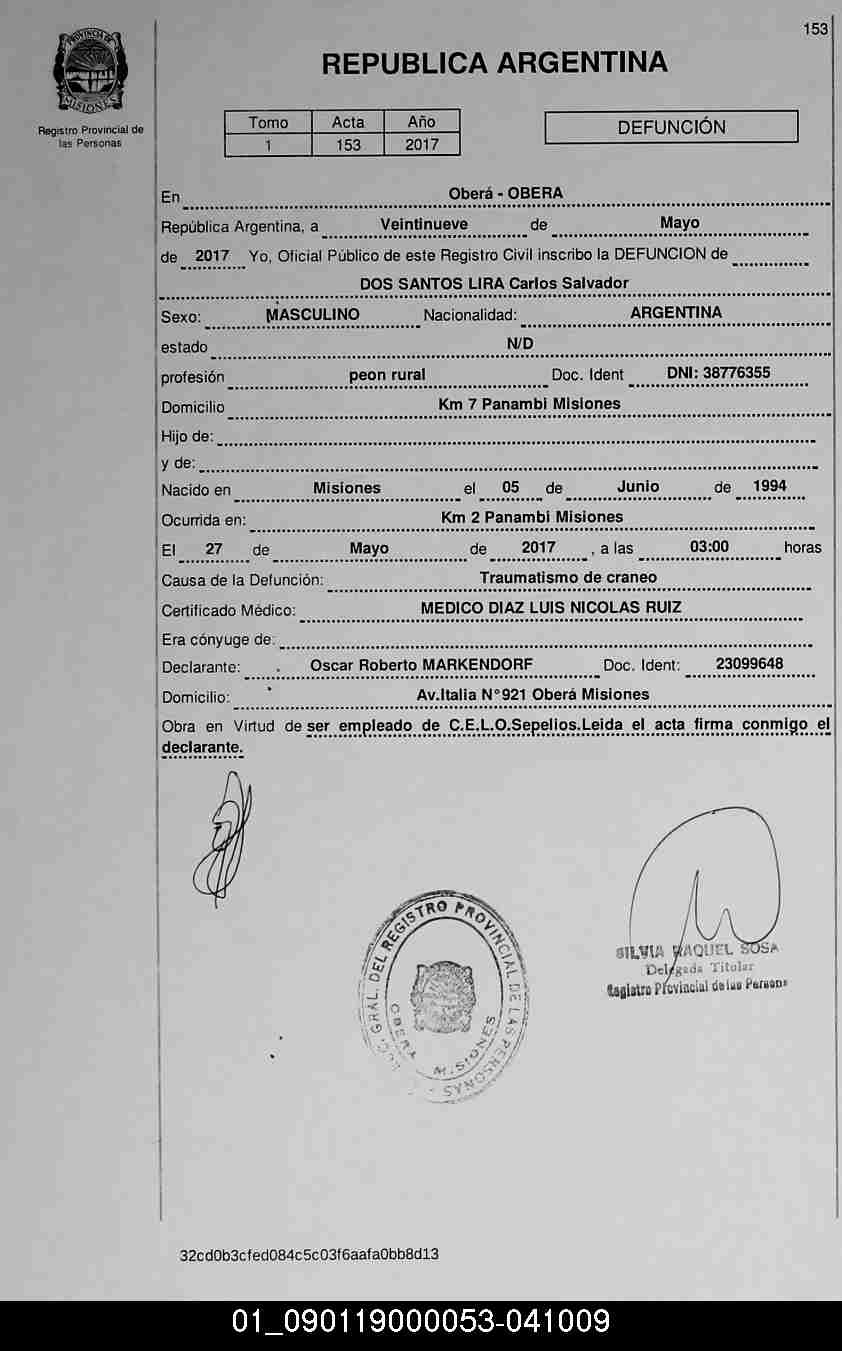 153
PROVINCIA DE
MISIONES
Registro Provincial de
las Personas
REPUBLICA ARGENTINA
Tomo Acta Año
1 153 2017
DEFUNCIÓN
En Oberá - OBERA
República Argentina, a Veintinueve de Mayo
de 2017 Yo, Oficial Público de este Registro Civil inscribo la DEFUNCION de
DOS SANTOS LIRA Carlos Salvador
Sexo: MASCULINO Nacionalidad: ARGENTINA
estado N/D
profesión peon rural Doc. Ident DNI: 38776355
Domicilio Km 7 Panambi Misiones
Hijo de:
y de:
Nacido en Misiones el 05 de Junio de 1994
Ocurrida en: Km 2 Panambi Misiones
El 27 de Mayo de 2017 , a las 03:00 horas
Causa de la Defunción: Traumatismo de craneo
Certificado Médico: MEDICO DIAZ LUIS NICOLAS RUIZ
Era cónyuge de:
Declarante: Oscar Roberto MARKENDORF Doc. Ident: 23099648
Domicilio: Av.Italia N°921 Oberá Misiones
Obra en Virtud de ser empleado de C.E.L.O.Sepelios.Leida el acta firma conmigo el
declarante.
GRAL. DEL REGISTRO PROVINCIAL DE LAS PERSONAS
OBERA MISIONES
SILVIA RAQUEL SOSA
Delegada Titular
Registro Provincial de las Personas
32cd0b3cfed084c5c03f6aafa0bb8d13
01_090119000053-041009